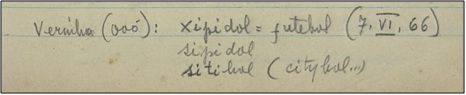 Verinha (ooó): xipidol = futebol (7, VI, 66)
sipidol
sitibol (citybol...)